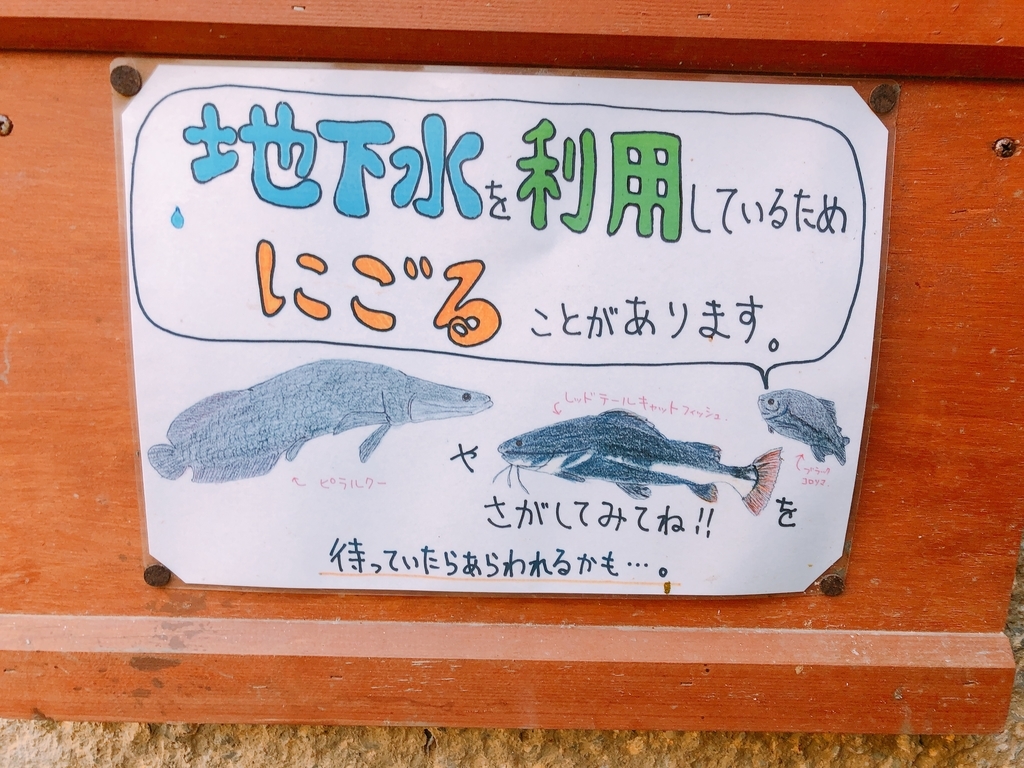 地下水を利用しているため
にごることがあります。
レッドテールキャットフィッシュ
ブラック
コロソマ
ピラルクー
や
を
さがしてみてね!!
待っていたらあらわれるかも…。